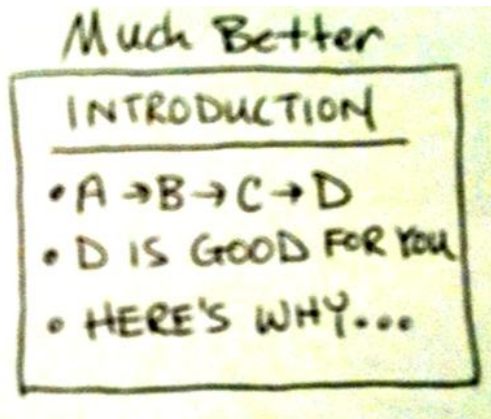 Much Better
INTRODUCTION
• A → B → C → D
• D IS GOOD FOR YOU
• HERE'S WHY...